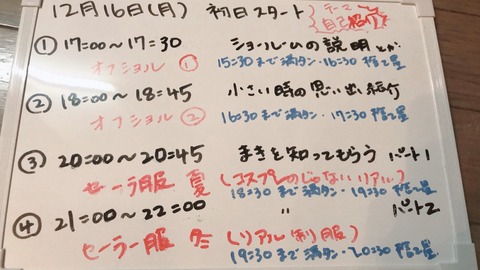 12月16日(月) 初日スタート テーマ 自己紹介
① 17:00〜17:30 ショールームの説明とか
オフショル ① 15:30まで満タン・16:30捨て星
② 18:00〜18:45 小さい時の思い出紹介
オフショル ② 16:30まで満タン・17:30捨て星
③ 20:00〜20:45 まきを知ってもらう パート1
セーラ服 夏 (コスプレのじゃないリアル)
18:30まで満タン・19:30捨て星
④ 21:00〜22:00 〃 パート2
セーラー服 冬 (リアル制服)
19:30まで満タン・20:30捨て星